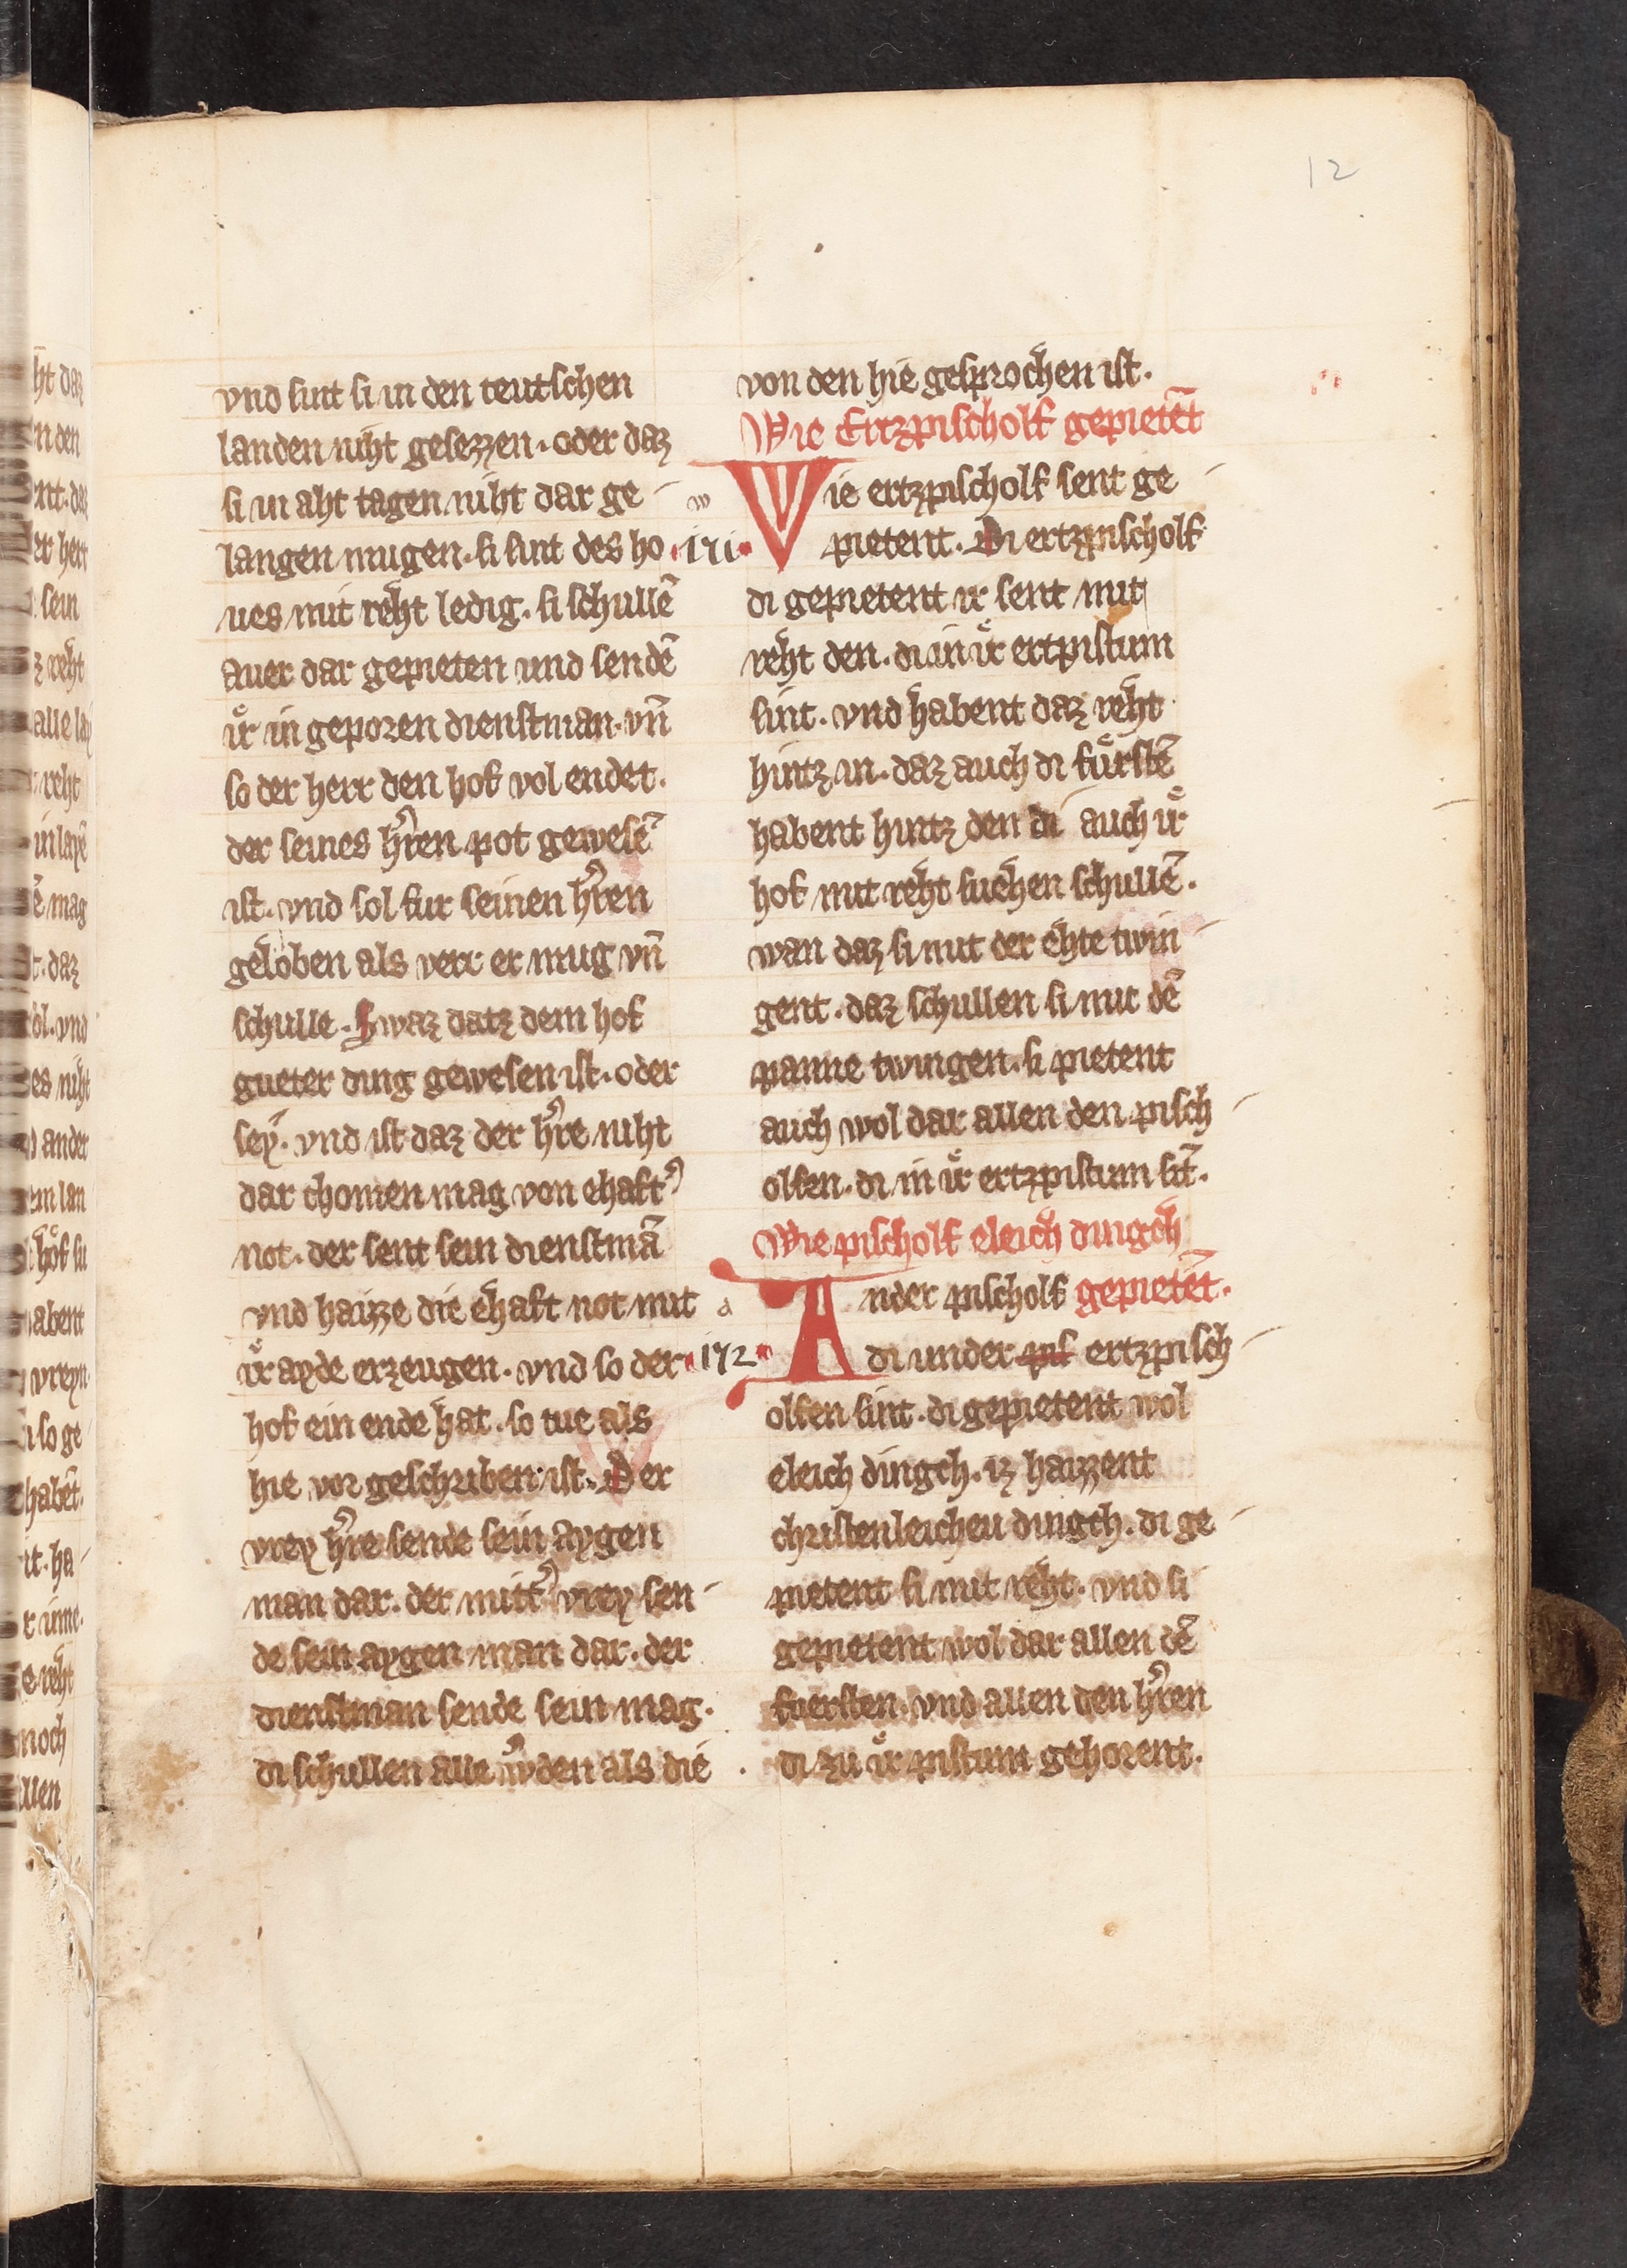 12
vnd sint si in den teutschen
landen niht gesezzen. oder daz
si in aht tagen niht dar ge
langen mugen. si sint des ho
ues mit reht ledig. si schullē
auer dar gepieten und sendē
iͤr in geporen dienstman. vn̄
so der herr den hof vol endet.
der seines hr̄en pot gewesē
ist. vnd sol fur seinen hr̄en
geloben als verr er mug vn̄
schulle. Swaz datz dem hof
gueter ding gewesen ist. oder
sey. vnd ist daz der hr̄e niht
dar chomen mag von ehaft᾽
not. der sent sein dienstmā
vnd haizze die ehaft not mit
iͤr ayde erzeugen. vnd so der
hof ein ende hat. so tue als
hie vor geschriben ist. Der
vrey hr̄e sende sein aygen
man dar. der mitt᾽ vrey sen
de sein aygen man dar. der
dienstman sende sein mag.
di schullen alle w᾽den als die
von den hie gesprochen ist.
Wie Ertzpischolf gepietēt
w
·171·
Wie ertzpischolf sent ge
pietent. Di ertzpischolf
di gepietent ir sent mit
reht den. di in iͤr ertpistum
sint. vnd habent daz reht
hintz in. daz auch di fuͤrstē
habent hintz den di auch iͤr
hof mit reht suchen schullē.
wan daz si mit der ehte twin
gent. daz schullen si mit dē
panne twingen. si pietent
auch wol dar allen den pisch
olfen. di in iͤr ertzpistum sīt.
Wie pischolf eleich dingch
a
·172·
Ander pischolf gepietēt.
di under pis ertzpisch
olfen sint. di gepietent wol
eleich dingch. iz haizzent
christenleichen dingch. di ge
pietent si mit reht. vnd si
gepietent wol dar allen dē
fuersten. vnd allen den hr̄en
di zu iͤr pistum gehorent.